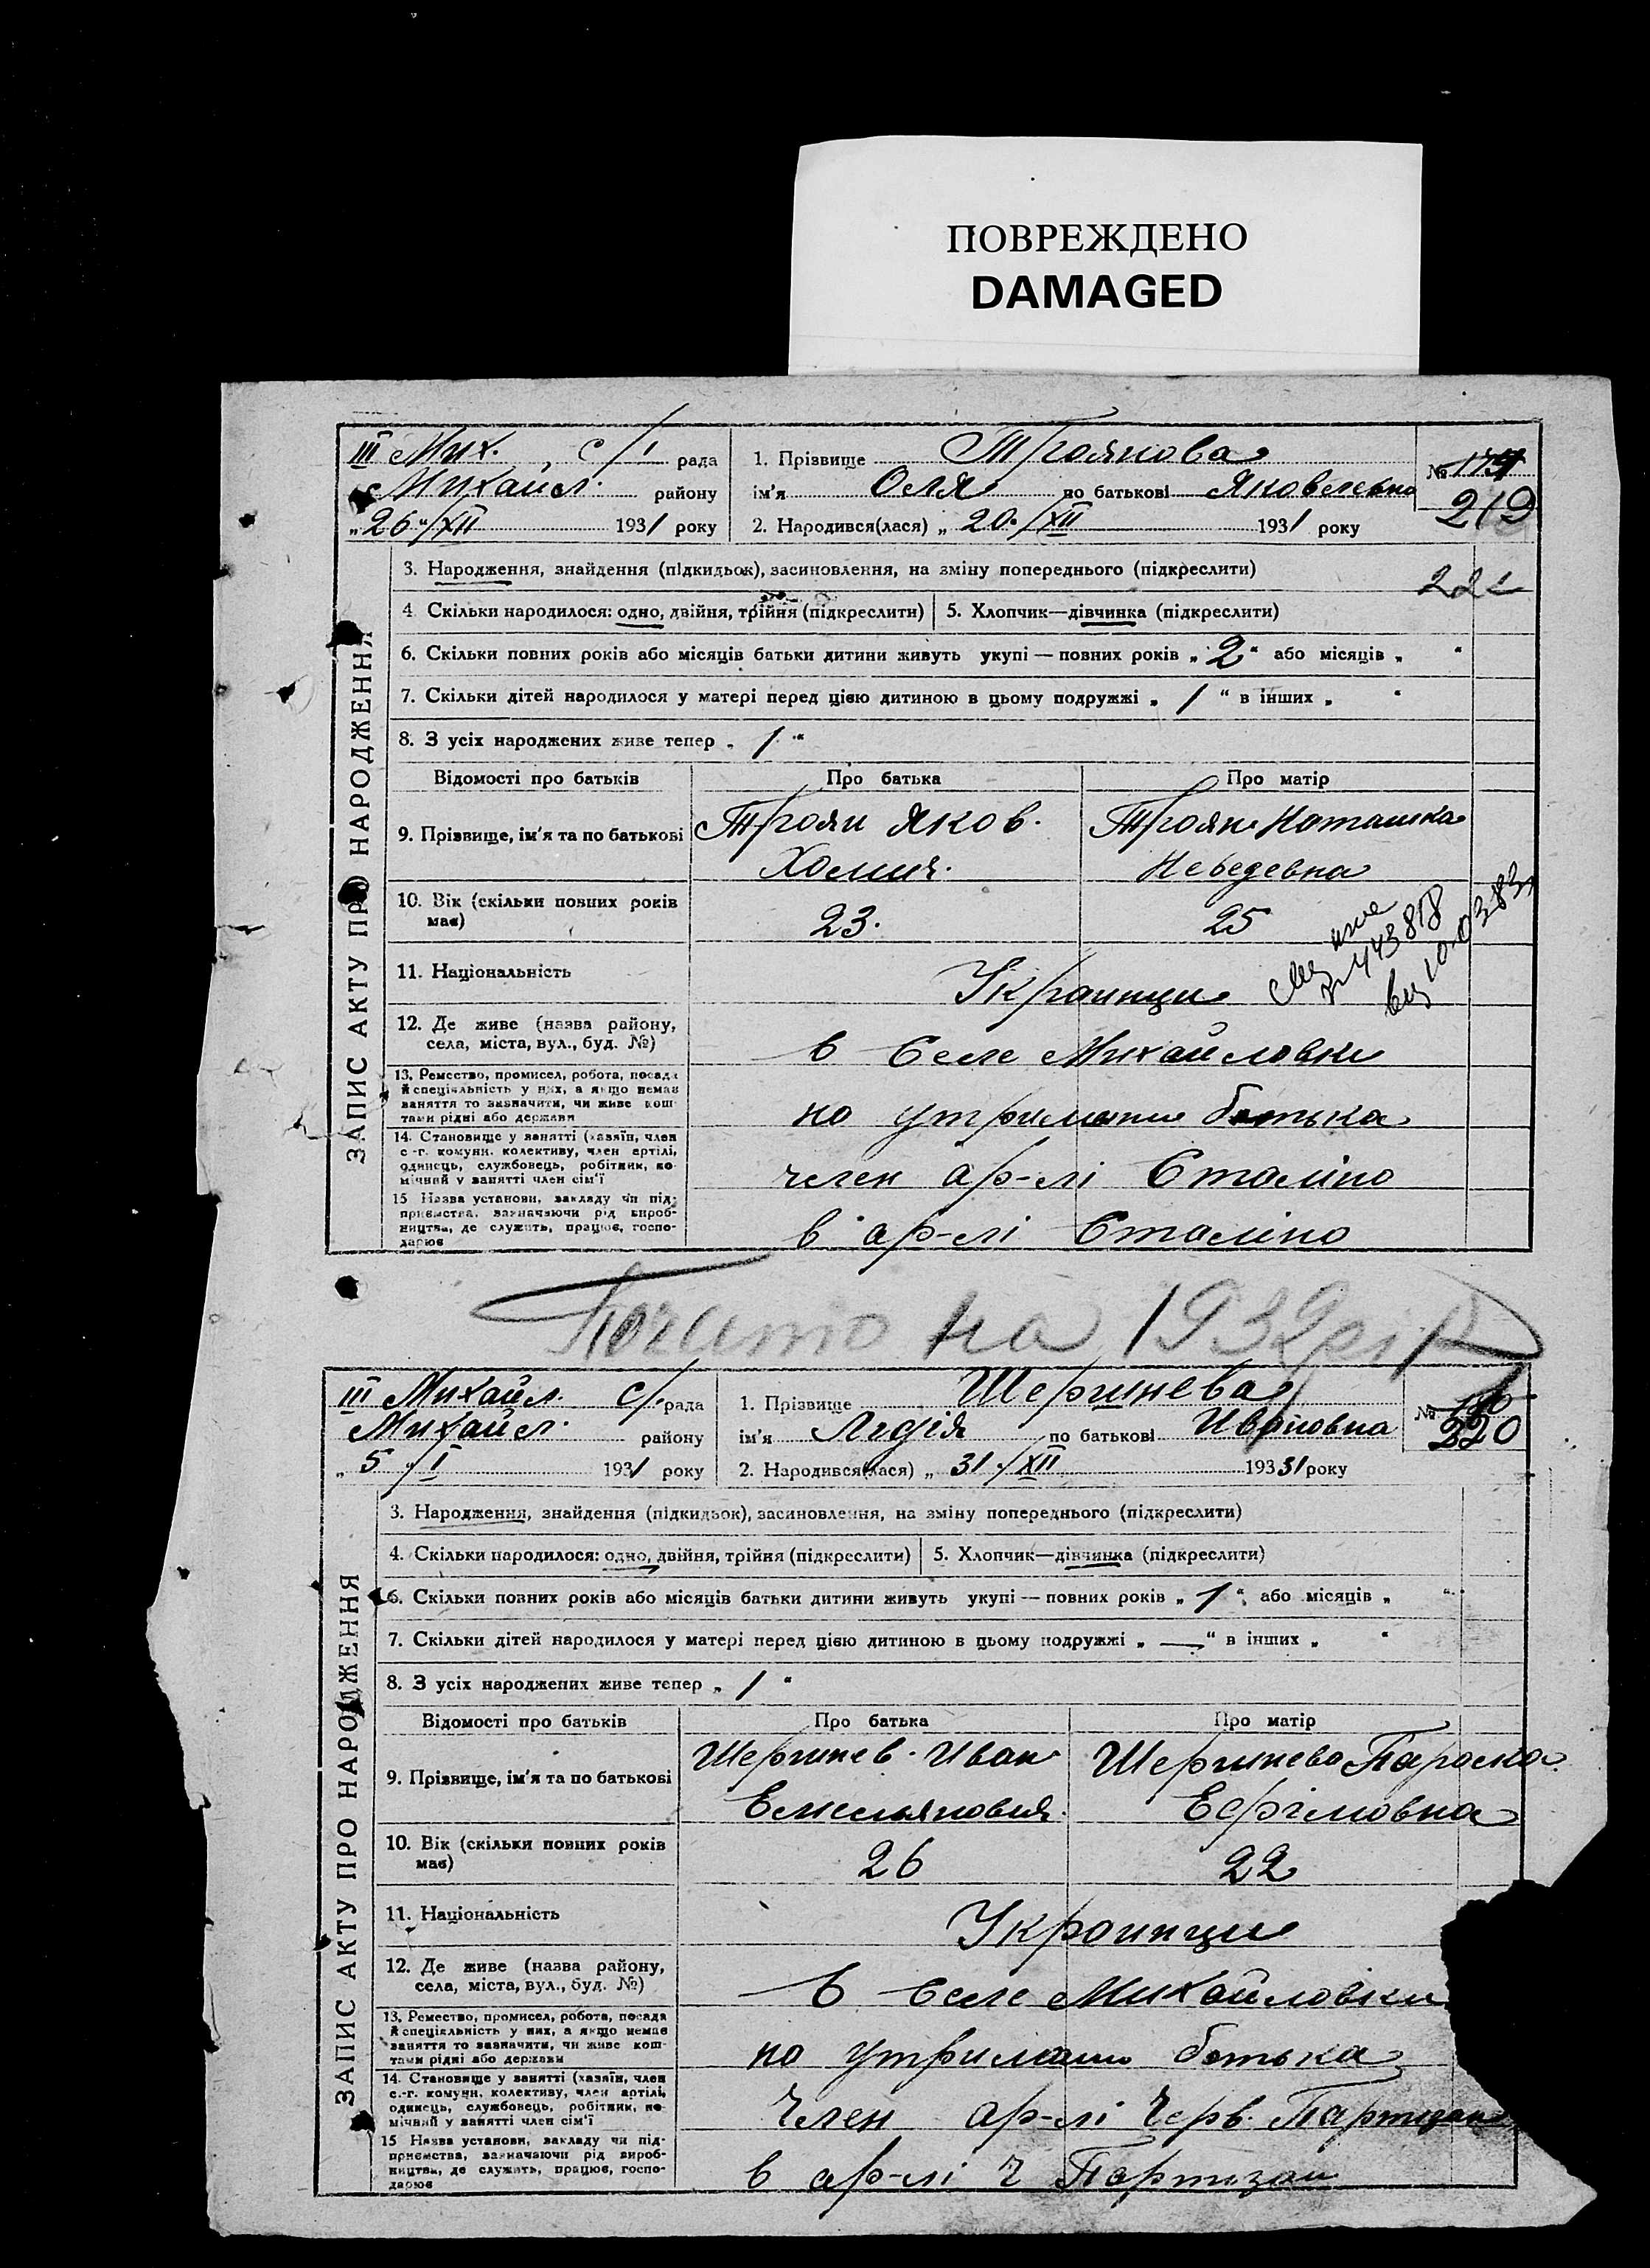 ПОВРЕЖДЕНО
DAMAGED
III Мих. с/ рада
Михайл. району
„26“/XII 1931 року
1. Прізвище Троянова
ім'я Оля по батькові Яковлевна
2. Народився(лася) „20“/XII 1931 року
№ 179
219
ЗАПИС АКТУ ПРО НАРОДЖЕННЯ
3. Народження, знайдення (підкидьок), засиновлення, на зміну попереднього (підкреслити)
4. Скільки народилося: одно, двійня, трійня (підкреслити) 5. Хлопчик—дівчинка (підкреслити)
6. Скільки повних років або місяців батьки дитини живуть укупі — повних років „2“ або місяців „ “
7. Скільки дітей народилося у матері перед цією дитиною в цьому подружжі „1“ в інших „ “
8. З усіх народжених живе тепер „1“
Відомості про батьків Про батька Про матір
9. Прізвище, ім'я та по батькові
Троян Яков. Троян Наташка
Хомич.
10. Вік (скільки повних років має)
23. 25
11. Національність
Украинци
12. Де живе (назва району, села, міста, вул., буд. №)
в Селе Михайловки
13. Ремество, промисел, робота, посада й спеціяльність у них, а якщо немає заняття то зазначити, чи живе коштами рідні або держави
на утримани батька
14. Становище у занятті (хазяїн, член с.-г. комуни, колективу, член артілі, одинець, службовець, робітник, помічний у занятті член сім'ї
член ар-лі Сталіно
15 Назва установи, закладу чи підприємства, зазначаючи рід виробництва, де служить, працює, господарює
в ар-лі Сталіно
443818
10.03.83
Почато на 1932 рік
III Михайл. с/ рада
Михайл. району
„5“/I 1931 року
1. Прізвище Шершнева
ім'я Лідія по батькові Ивановна
2. Народився(лася) „31“/XII 193 31 року
№ 180
220
ЗАПИС АКТУ ПРО НАРОДЖЕННЯ
3. Народження, знайдення (підкидьок), засиновлення, на зміну попереднього (підкреслити)
4. Скільки народилося: одно, двійня, трійня (підкреслити) 5. Хлопчик—дівчинка (підкреслити)
6. Скільки повних років або місяців батьки дитини живуть укупі — повних років „1“ або місяців „ “
7. Скільки дітей народилося у матері перед цією дитиною в цьому подружжі „—“ в інших „ “
8. З усіх народжених живе тепер „1“
Відомості про батьків Про батька Про матір
9. Прізвище, ім'я та по батькові
Шершнев Иван Шершнева Параска
Емельянович. Ефрімовна
10. Вік (скільки повних років має)
26 22
11. Національність
Украинци
12. Де живе (назва району, села, міста, вул., буд. №)
в Селе Михайловки
13. Ремество, промисел, робота, посада й спеціяльність у них, а якщо немає заняття то зазначити, чи живе коштами рідні або держави
на утримани батька
14. Становище у занятті (хазяїн, член с.-г. комуни, колективу, член артілі, одинець, службовець, робітник, помічний у занятті член сім'ї
Член ар-лі Черв. Партизан
15 Назва установи, закладу чи підприємства, зазначаючи рід виробництва, де служить, працює, господарює
в ар-лі Ч Партизан